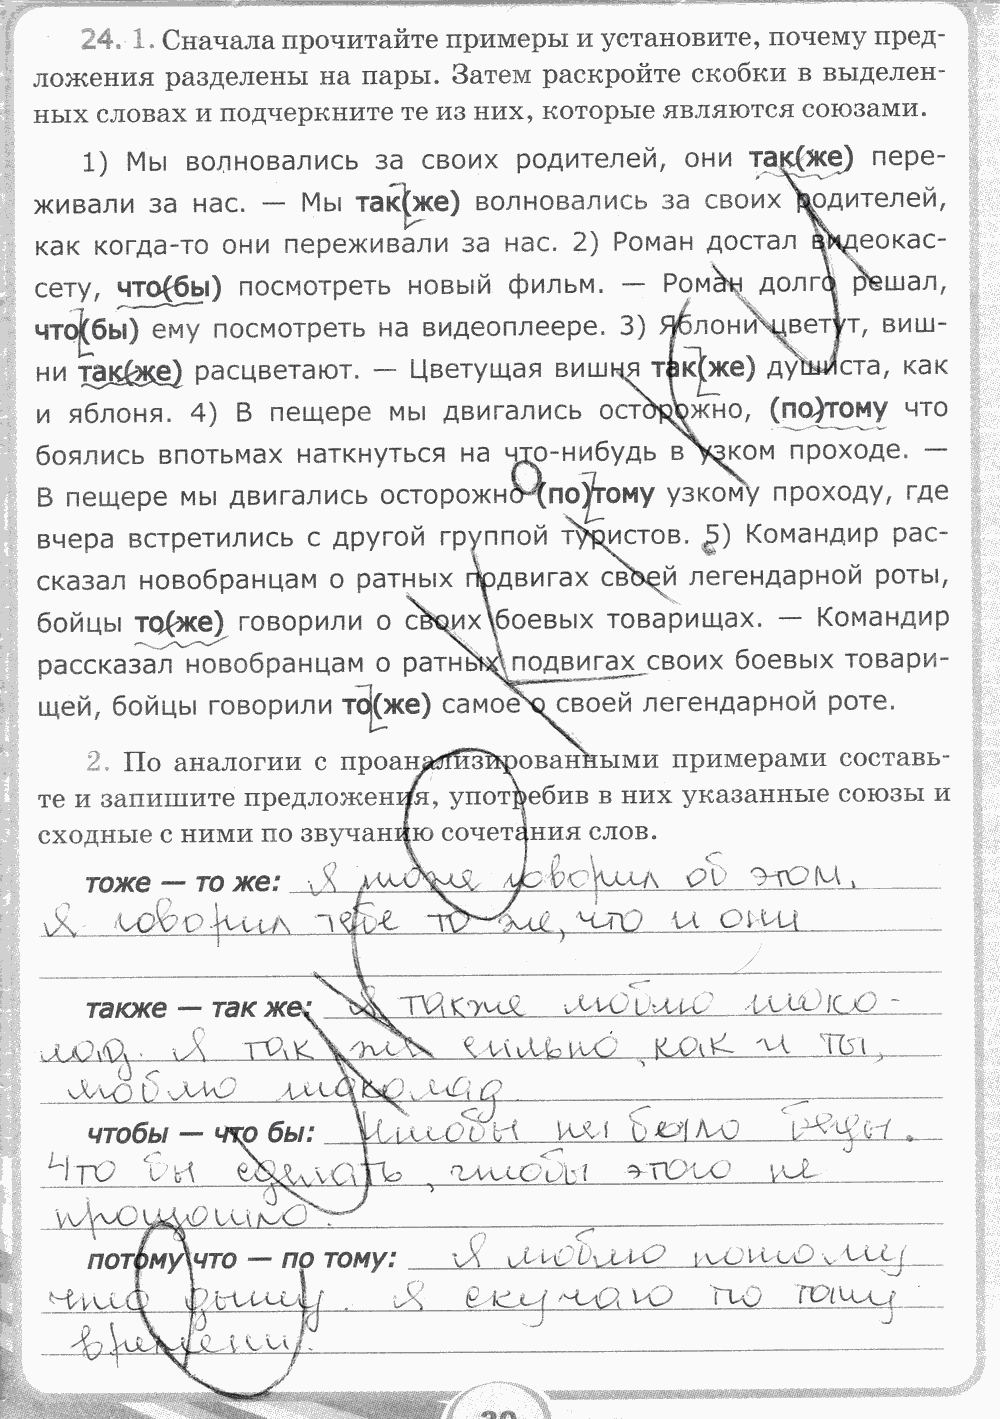 24. 1. Сначала прочитайте примеры и установите, почему пред-
ложения разделены на пары. Затем раскройте скобки в выделен-
ных словах и подчеркните те из них, которые являются союзами.
1) Мы волновались за своих родителей, они так(же) пере-
живали за нас. — Мы так(же) волновались за своих родителей,
как когда-то они переживали за нас. 2) Роман достал видеокас-
сету, что(бы) посмотреть новый фильм. — Роман долго решал,
что(бы) ему посмотреть на видеоплеере. 3) Яблони цветут, виш-
ни так(же) расцветают. — Цветущая вишня так(же) душиста, как
и яблоня. 4) В пещере мы двигались осторожно, (по)тому что
боялись впотьмах наткнуться на что-нибудь в узком проходе. —
В пещере мы двигались осторожно (по)тому узкому проходу, где
вчера встретились с другой группой туристов. 5) Командир рас-
сказал новобранцам о ратных подвигах своей легендарной роты,
бойцы то(же) говорили о своих боевых товарищах. — Командир
рассказал новобранцам о ратных подвигах своих боевых товари-
щей, бойцы говорили то(же) самое о своей легендарной роте.
2. По аналогии с проанализированными примерами составь-
те и запишите предложения, употребив в них указанные союзы и
сходные с ними по звучанию сочетания слов.
тоже — то же: Я тоже говорил об этом.
Я говорил тебе то же, что и они
также — так же: Я также люблю шоко-
лад. Я так же сильно, как и ты,
люблю шоколад.
чтобы — что бы: Чтобы не было беды.
Что бы сделать, чтобы этого не
произошло.
потому что — по тому: Я люблю потому
что дышу. Я скучаю по тому
времени.
30